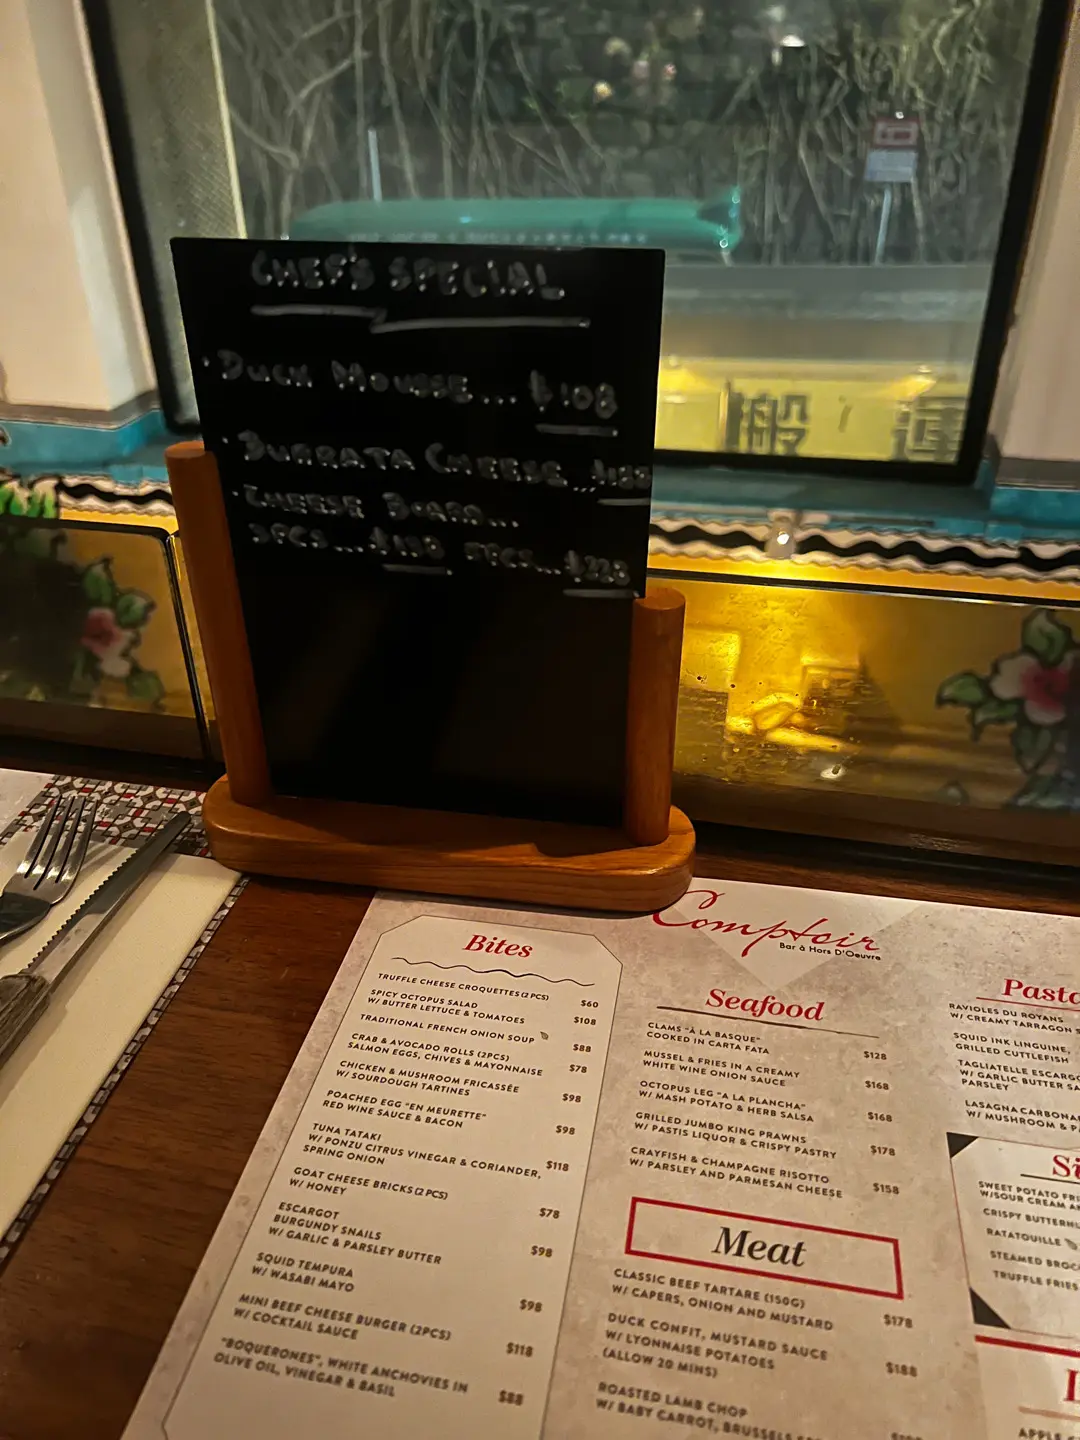 CHEF'S SPECIAL
· DUCK MOUSSE... $108
· BURRATA CHEESE...
· CHEESE BOARD...
3PCS... 5PCS... $228
搬 運
Comptoir
Bar à Hors D'Oeuvre
Bites
TRUFFLE CHEESE CROQUETTES (2 PCS) $60
SPICY OCTOPUS SALAD
W/ BUTTER LETTUCE & TOMATOES $108
TRADITIONAL FRENCH ONION SOUP $88
CRAB & AVOCADO ROLLS (2PCS)
SALMON EGGS, CHIVES & MAYONNAISE $78
CHICKEN & MUSHROOM FRICASSÉE
W/ SOURDOUGH TARTINES $98
POACHED EGG "EN MEURETTE"
RED WINE SAUCE & BACON $98
TUNA TATAKI
W/ PONZU CITRUS VINEGAR & CORIANDER, $118
SPRING ONION
GOAT CHEESE BRICKS (2 PCS)
W/ HONEY $78
ESCARGOT
BURGUNDY SNAILS
W/ GARLIC & PARSLEY BUTTER $98
SQUID TEMPURA
W/ WASABI MAYO $98
MINI BEEF CHEESE BURGER (2PCS)
W/ COCKTAIL SAUCE $118
"BOQUERONES", WHITE ANCHOVIES IN
OLIVE OIL, VINEGAR & BASIL $88
Seafood
CLAMS "À LA BASQUE"
COOKED IN CARTA FATA $128
MUSSEL & FRIES IN A CREAMY
WHITE WINE ONION SAUCE $168
OCTOPUS LEG "A LA PLANCHA"
W/ MASH POTATO & HERB SALSA $168
GRILLED JUMBO KING PRAWNS
W/ PASTIS LIQUOR & CRISPY PASTRY $178
CRAYFISH & CHAMPAGNE RISOTTO
W/ PARSLEY AND PARMESAN CHEESE $158
Meat
CLASSIC BEEF TARTARE (150G)
W/ CAPERS, ONION AND MUSTARD $178
DUCK CONFIT, MUSTARD SAUCE
W/ LYONNAISE POTATOES $188
(ALLOW 20 MINS)
ROASTED LAMB CHOP
W/ BABY CARROT, BRUSSELS
Pasta
RAVIOLES DU ROYANS
W/ CREAMY TARRAGON
SQUID INK LINGUINE,
GRILLED CUTTLEFISH
TAGLIATELLE ESCARGO
W/ GARLIC BUTTER
PARSLEY
LASAGNA CARBONA
W/ MUSHROOM &
Si
SWEET POTATO FRI
W/SOUR CREAM
CRISPY BUTTERNU
RATATOUILLE
STEAMED BROC
TRUFFLE FRIES
APPLE